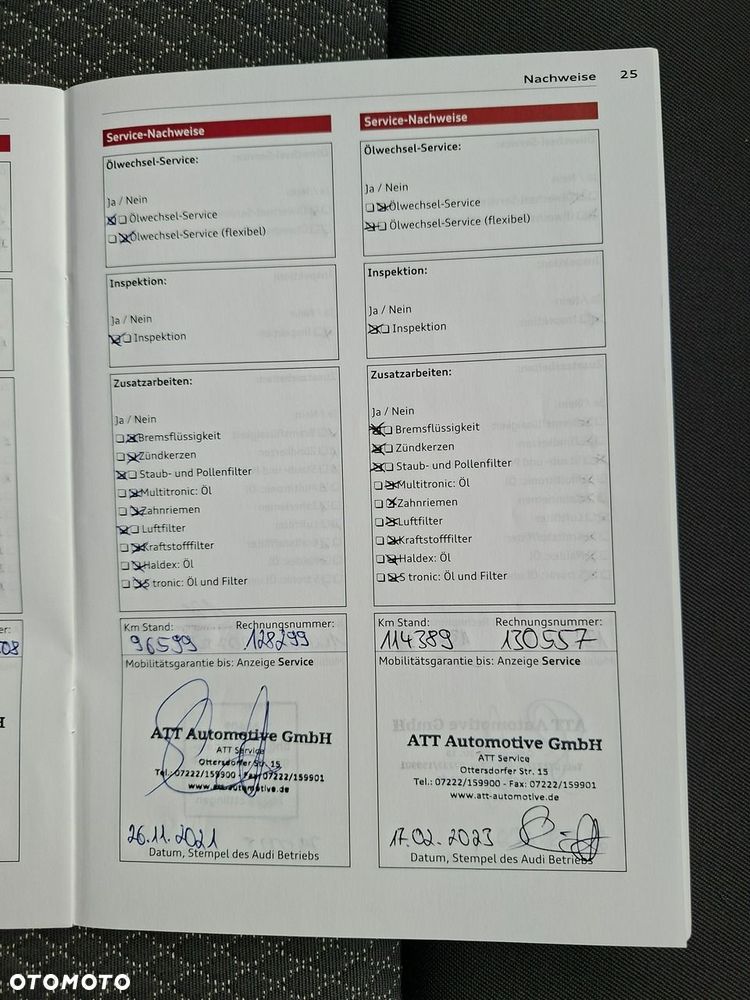 Nachweise 25
Service-Nachweise
Ölwechsel-Service:
Ja / Nein
Ölwechsel-Service
Ölwechsel-Service (flexibel)
Inspektion:
Ja / Nein
Inspektion
Zusatzarbeiten:
Ja / Nein
Bremsflüssigkeit
Zündkerzen
Staub- und Pollenfilter
Multitronic: Öl
Zahnriemen
Luftfilter
Kraftstofffilter
Haldex: Öl
S tronic: Öl und Filter
Km Stand: Rechnungsnummer:
96599 128299
Mobilitätsgarantie bis: Anzeige Service
ATT Automotive GmbH
ATT Service
Ottersdorfer Str. 15
Tel.: 07222/159900 - Fax: 07222/159901
www.att-automotive.de
26.11.2021
Datum, Stempel des Audi Betriebs
Service-Nachweise
Ölwechsel-Service:
Ja / Nein
Ölwechsel-Service
Ölwechsel-Service (flexibel)
Inspektion:
Ja / Nein
Inspektion
Zusatzarbeiten:
Ja / Nein
Bremsflüssigkeit
Zündkerzen
Staub- und Pollenfilter
Multitronic: Öl
Zahnriemen
Luftfilter
Kraftstofffilter
Haldex: Öl
S tronic: Öl und Filter
Km Stand: Rechnungsnummer:
114389 130557
Mobilitätsgarantie bis: Anzeige Service
ATT Automotive GmbH
ATT Service
Ottersdorfer Str. 15
Tel.: 07222/159900 - Fax: 07222/159901
www.att-automotive.de
17.02.2023
Datum, Stempel des Audi Betriebs
OTOMOTO